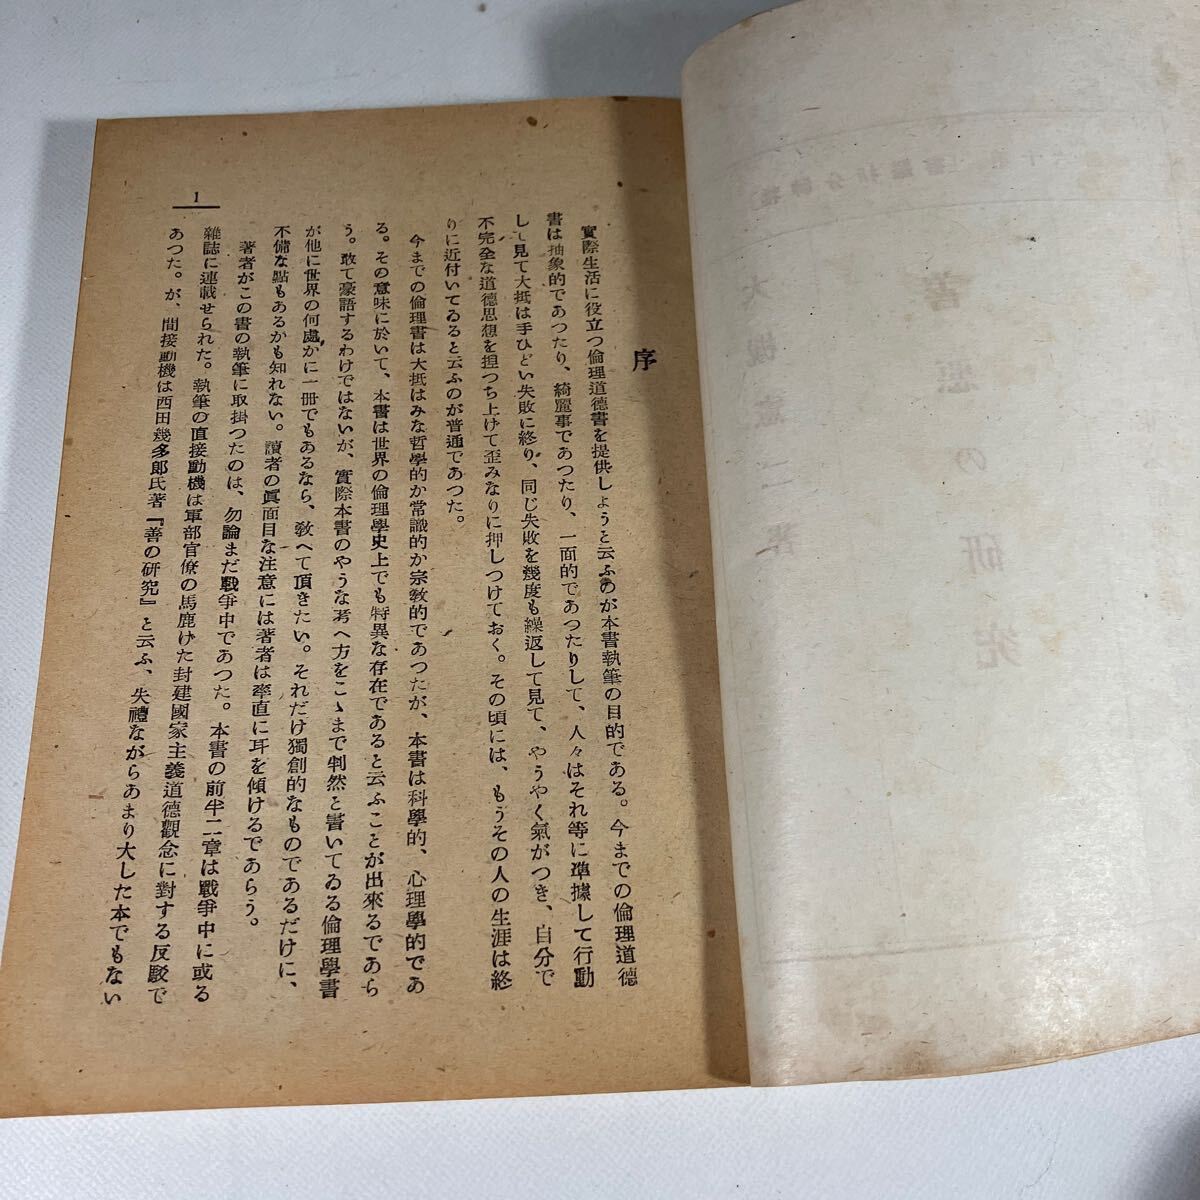 序
實際生活に役立つ倫理道德書を提供しようと云ふのが本書執筆の目的である。今までの倫理道德
書は抽象的であつたり、綺麗事であつたり、一面的であつたりして、人々はそれ等に準據して行動
して見て大抵は手ひどい失敗に終り、同じ失敗を幾度も繰返して見て、やうやく氣がつき、自分で
不完全な道德思想を担つち上げて歪みなりに押しつけておく。その頃には、もうその人の生涯は終
りに近付いてゐると云ふのが普通であつた。
今までの倫理書は大抵はみな哲學的か常識的か宗敎的であつたが、本書は科學的、心理學的であ
る。その意味に於いて、本書は世界の倫理學史上でも特異な存在であると云ふことが出來るであら
う。敢て豪語するわけではないが、實際本書のやうな考へ方をこゝまで判然と書いてゐる倫理學書
が他に世界の何處かに一冊でもあるなら、敎へて頂きたい。それだけ獨創的なものであるだけに、
不備な點もあるかも知れない。讀者の眞面目な注意には著者は率直に耳を傾けるであらう。
著者がこの書の執筆に取掛つたのは、勿論まだ戰爭中であつた。本書の前半二章は戰爭中に或る
雜誌に連載せられた。執筆の直接動機は軍部官僚の馬鹿げた封建國家主義道德觀念に對する反駁で
あつた。が、間接動機は西田幾多郎氏著『善の研究』と云ふ、失禮ながらあまり大した本でもない
1
大槻憲二著
善悪の研究